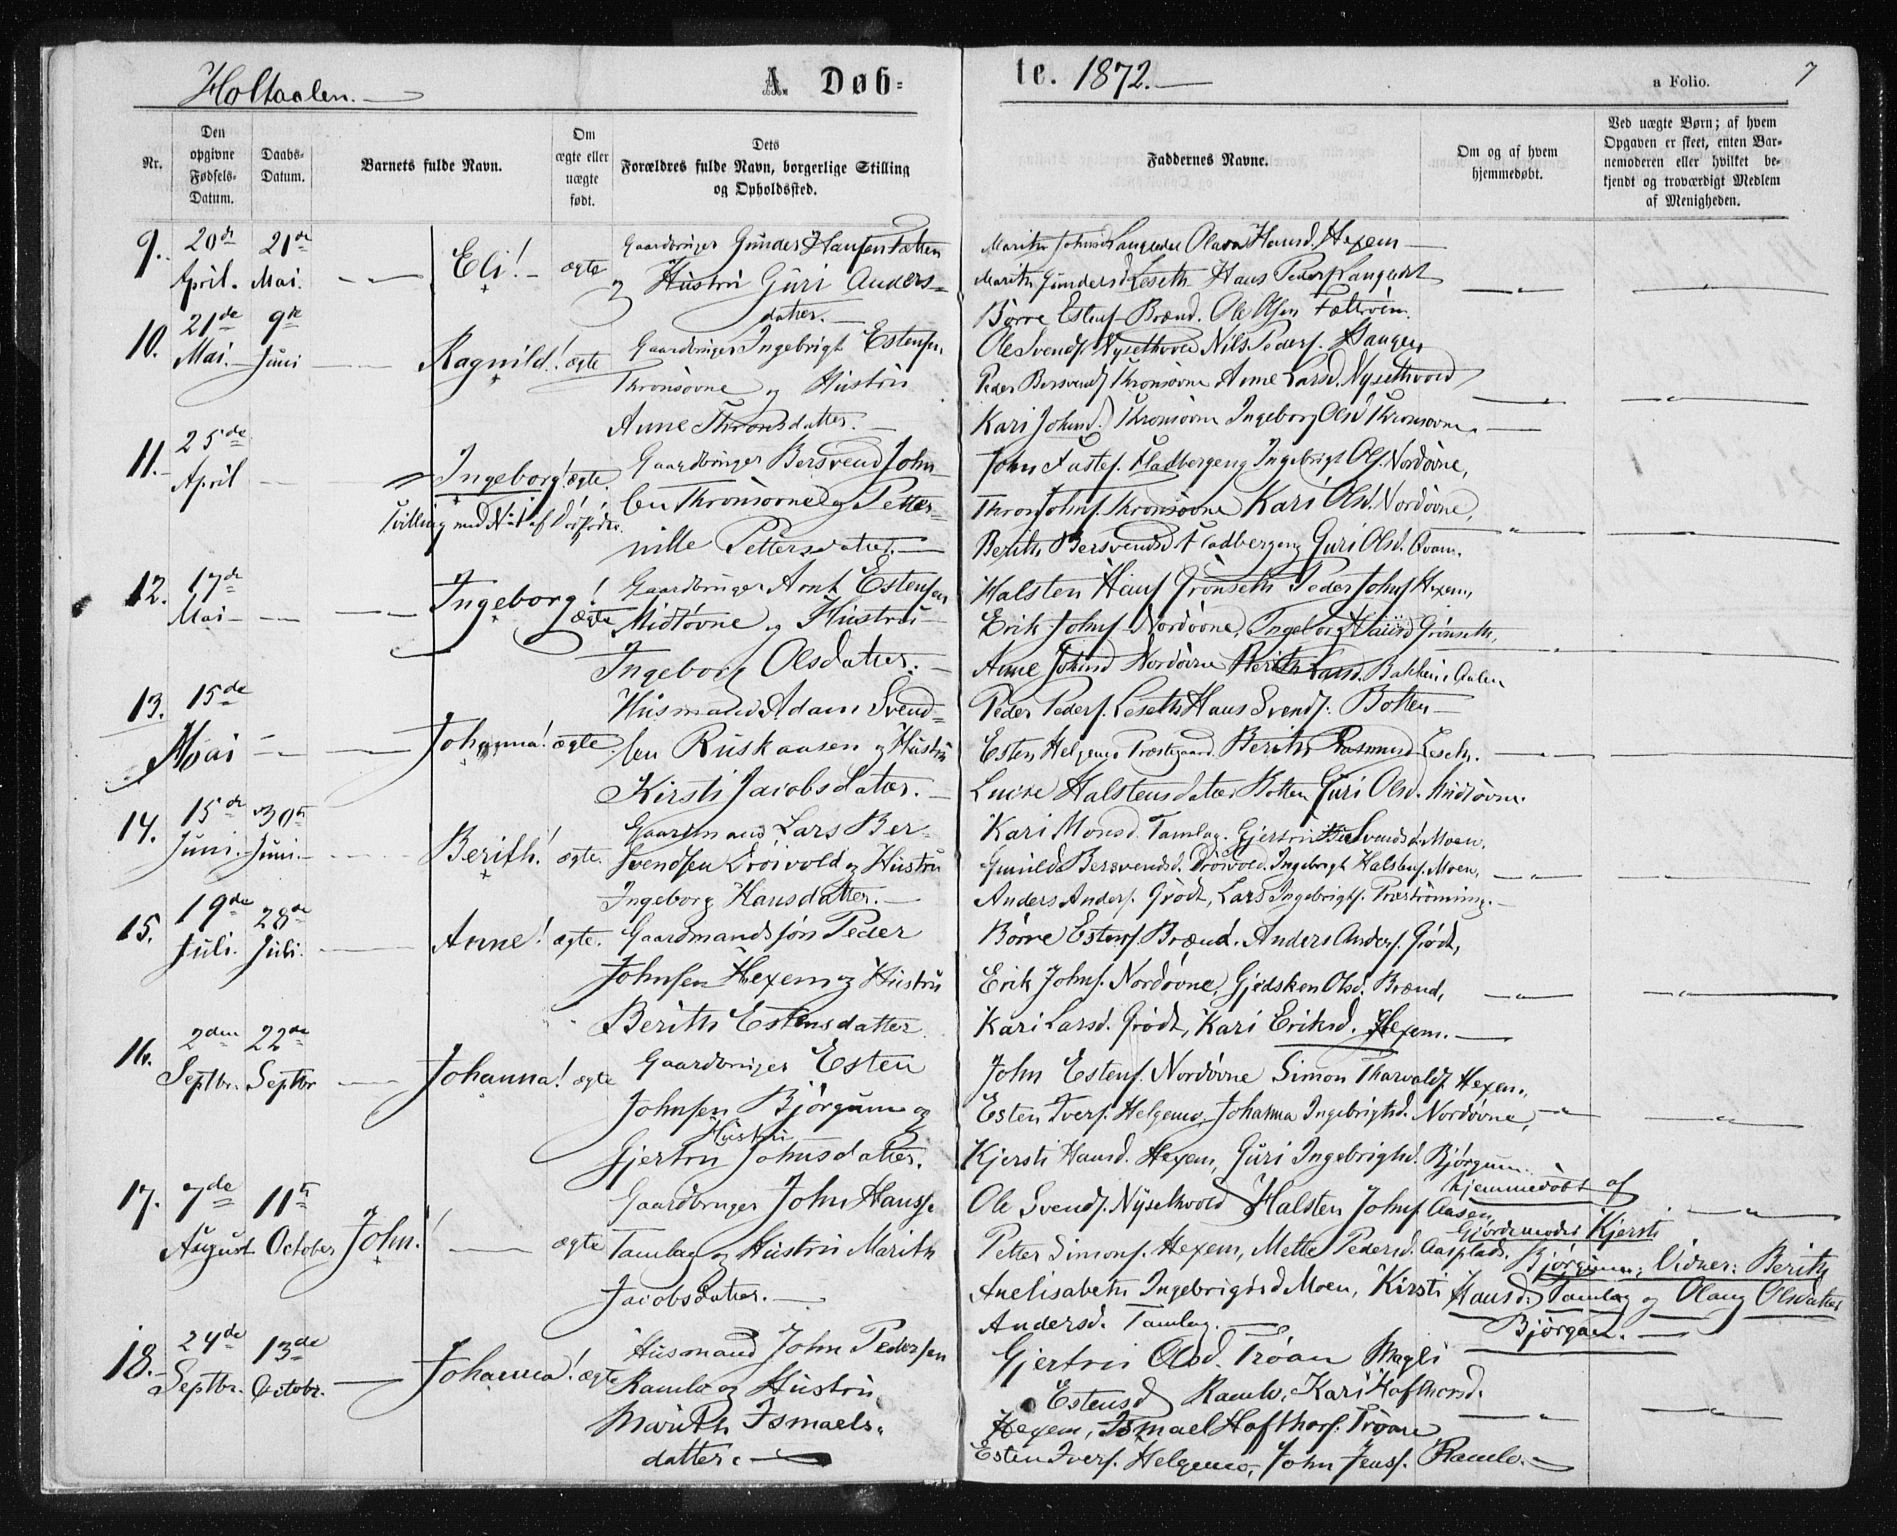 Holtaalen.
A. Døb=
te. 1872.
a Folio. 7
Nr.
Den opgivne Fødsels-Datum.
Daabs-Datum.
Barnets fulde Navn.
Om ægte eller uægte født.
Dets Forældres fulde Navn, borgerlige Stilling og Opholdssted.
Faddernes Navne.
Om og af hvem hjemmedøbt.
Ved uægte Børn; af hvem Opgaven er skeet, enten Barnemoderen eller hvilket bekjendt og troværdigt Medlem af Menigheden.
9. 20de April. 21de Mai. Eli! ægte Gaardbruger Gunder Hansen
og Hustru Guri Anders=
datter.
Marith Johnsd. Langeedet Olava Hansd. Hexem
Marith Gundersd. Leseth Hans Peders. Langedt
Børre Estens. Brænd. Ole Olsen
10. 21de Mai. 9de Juni Ragnild! ægte Gaardbruger Ingebrigt Estensen
Thronsovne og Hustru
Anne Thronsdatter.
Ole Svends. Nysethvold Nils Peders. Haugen
Peder Bersvends. Thronsovne Anne Larsd. Nysethvold
Kari Johnsd. Thronsovne Ingeborg Olsd. Thronsovne
11. 25de April Ingeborg! ægte. Gaardbruger Bersvend John=
Tvilling med No 1 af
sen Thronsovne og Petter=
nille Pettersdatter.
John Fastes. Fladbergeng Ingebrigt Ols. Nordøvne,
Thron Johns. Thronsovne Kari Olsd. Nordøvne,
Berith Bersvendsd. Fladbergeng Guri Olsd. Qvam.
12. 17de Mai Ingeborg! ægte Gaardbruger Arnt Estensen
Midtøvne og Hustru
Ingeborg Olsdatter.
Halsten Hans. Grønseth Peder Johns. Hexem,
Erik Johns. Nordøvne, Ingeborg Hansd. Grønseth,
Anne Johnsd. Nordøvne Berith Larsd. Bakken i Aalen
13. 15de Mai Johanna! ægte. Husmand Adam Svend=
sen Ruskaasen og Hustru
Kirsti Jacobsdatter.
Peder Peders. Leseth Hans Svends. Botten
Esten Helgemo Præstegaard. Berith Rasmusd. Leseth.
Lucie Halstensdatter Botten Guri Olsd. Midtøvne.
14. 15de Juni. 30te Juni. Berith! ægte. Gaardmand Lars Ber=
svendsen Drøivold og Hustru
Ingeborg Hansdatter.
Kari Monsd. Tamlag. Gjertru Bersvendsd. Moen.
Gunilda Bersvendsd. Drøivold. Ingebrigt Halstens. Moen,
Anders Anders. Grødt, Lars Ingebrigts.
15. 19de Juli. 28de Juli. Anne! ægte. Gaardmandssøn Peder
Johnsen Hexem og Hustru
Berith Estensdatter
Børre Estens. Brænd. Anders Anders. Grødt,
Erik Johns. Nordøvne, Gjødsken Olsd. Brænd,
Kari Larsd. Grødt, Kari Eriksd. Hexem.
16. 2den Septbr. 22de Septbr Johanna! ægte Gaardbruger Esten
Johnsen Bjørgum og
Hustru
Gjertru Johnsdatter.
John Estens. Nordøvne Simon Tharvalds. Hexem.
Esten Ivers. Helgemo, Johanna Ingebrightd. Nordøvne,
Kjersti Hansd. Hexem, Guri Ingebrightd. Bjørgum.
17. 7de August 11te October John! ægte Gaardbruger John Hanss.
Tamlag og Hustru Marith
Jacobsdatter.
Ole Svends. Nysethvold Halsten Johns. Aasen
Petter Simons. Hexem, Mette Pedersd. Aasplads.
Anelisabeth Ingebrigtsd. Moen, Kirsti
Andersd. Tamlag.
Hjemmedøbt af
Gjordemoder Kjersti
Bjørgum; Vidner: Berith
Hansd. Tamlag og Olaug Olsdatter
Bjørgan.
18. 24de Septbr. 13de Octobr. Johanna! ægte Husmand John Pedersen
Ramlo og Hustru
Marith Ismaels=
datter.
Gjertru Olsd. Trøan Magli
Estensd. Ramlo, Kari Hafthorsd.
Hexem, Ismael Hafthors. Trøan
Esten Ivers. Helgemo, John Jenss. Ramlo.